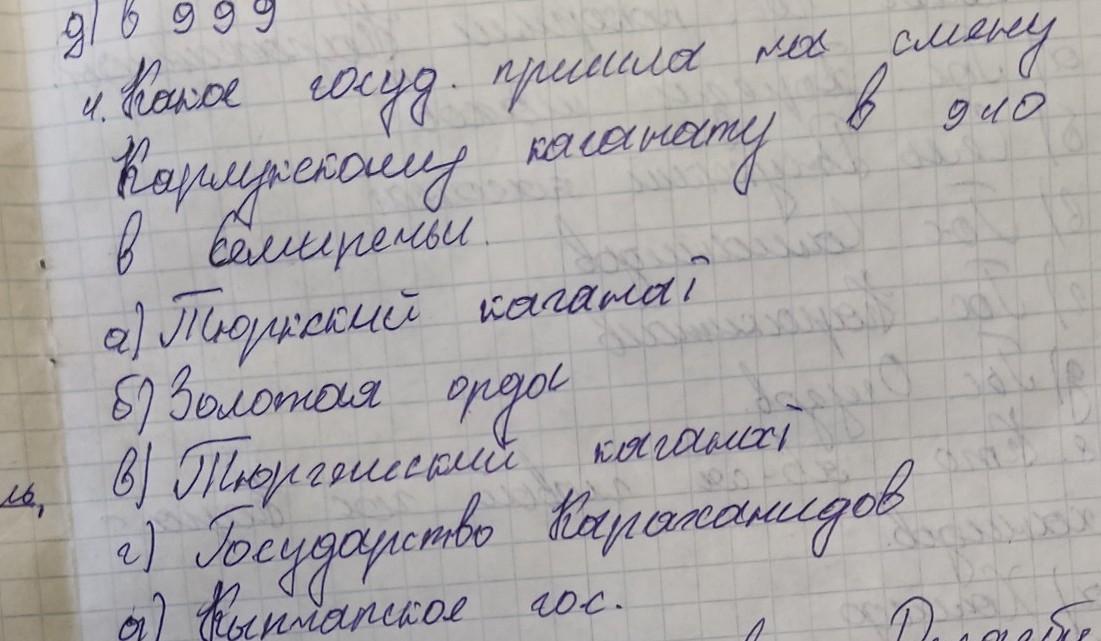 д) в 999
4. Какое госуд. пришла на смену
Карлукскому каганату в 940
в Семиречьи.
а) Тюркский каганат
б) Золотая орда
в) Тюргешский каганат
г) Государство Караханидов
д) Кыпчапское гос.